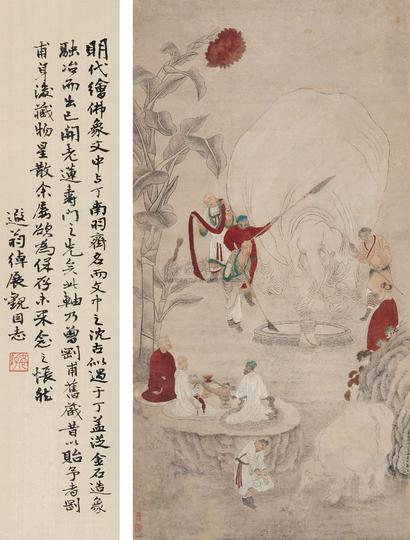 明代繪佛象文中与丁南羽齊名而文中之沈古似過于丁蓋從金石造象
融冶而出已開老蓮壽門之先矣此軸乃曾剛甫舊藏昔以貽予者剛
甫身後藏物星散余屢欲為保存未果念之悵然
遐翁綽展觀因志